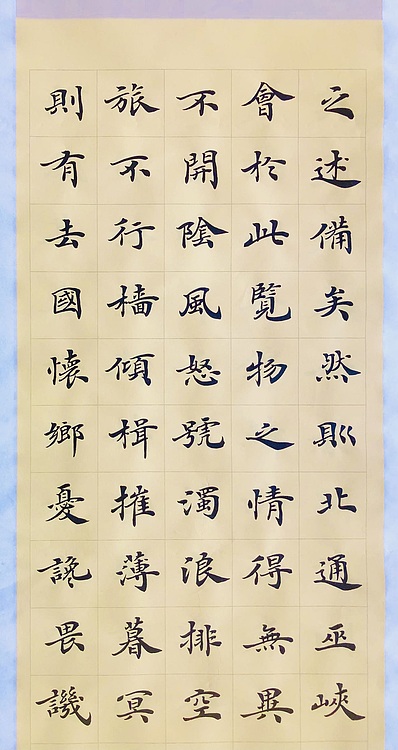 之述備矣然則北通巫峽
會於此覽物之情得無異
不開陰風怒號濁浪排空
旅不行檣傾楫摧薄暮冥
則有去國懷鄉憂讒畏譏